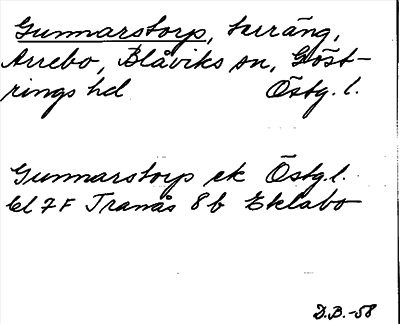 Gunnarstorp, terräng,
Arrebo, Blåviks sn, Göst-
rings hd Östg. l.
Gunnarstorp ek Östg.l.
bl 7 F Tranås 8 b Eklabo
D.B.-58